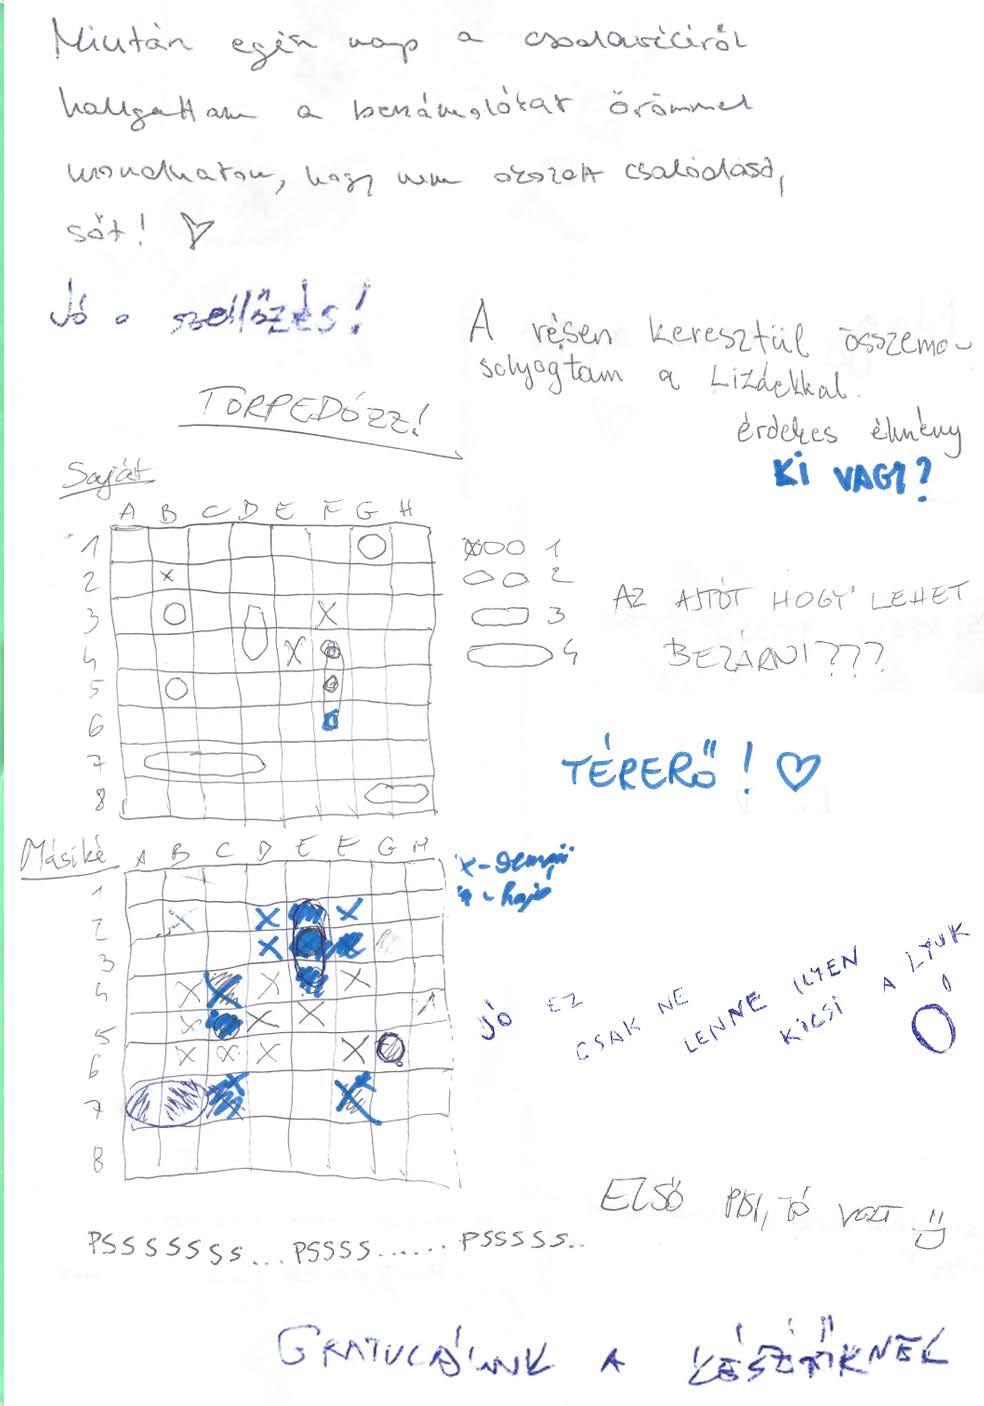 Miután egész nap a csodavéciről
hallgattam a beszámolókat örömmel
mondhatom, hogy nem okozott csalódást,
sőt! ♡
Jó a szellőzés!
A résen keresztül összemo-
solyogtam a Lizáékkal.
érdekes élmény
KI VAGY?
TORPEDÓZZ!
Saját
A B C D E F G H
1
2
3
4
5
6
7
8
1
2
3
4
AZ AJTÓT HOGY LEHET
BEZÁRNI???
TÉRERŐ! ♡
Másiké A B C D E F G H
1
2
3
4
5
6
7
8
x-
- hajó
JÓ EZ
CSAK NE
LENNE ILYEN
KICSI A LYUK
ELSŐ PISI, JÓ VOLT
PSSSSSSS... PSSSS...... PSSSSS..
GRATULÁLUNK A KÉSZÍTŐKNEK